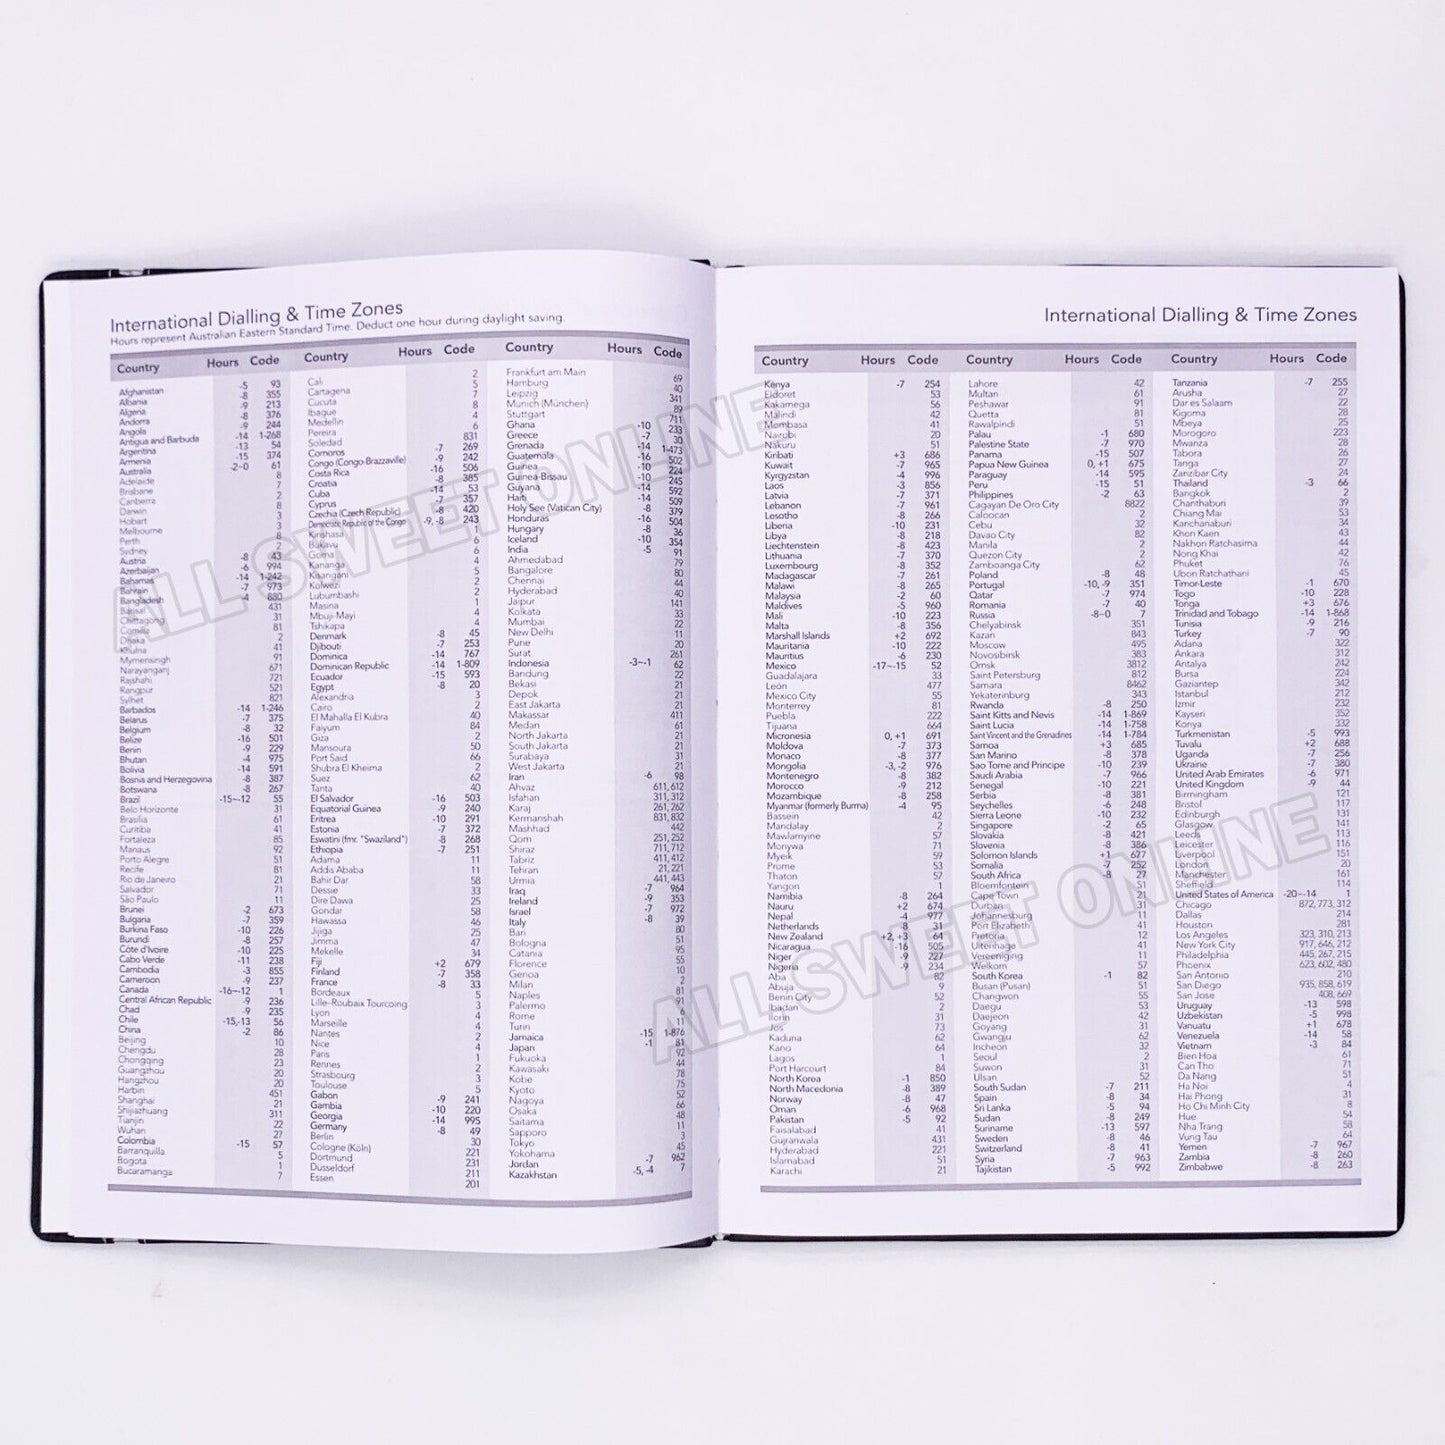 International Dialling & Time Zones
Hours represent Australian Eastern Standard Time. Deduct one hour during daylight saving.
Country Hours Code
Afghanistan -5 93
Albania -8 355
Algeria -9 213
Andorra -8 376
Angola -9 244
Antigua and Barbuda -14 1-268
Argentina -13 54
Armenia -15 374
Australia -2~0 61
Adelaide 8
Brisbane 7
Canberra 2
Darwin 8
Hobart 3
Melbourne 3
Perth 8
Sydney 2
Austria -8 43
Azerbaijan -6 994
Bahamas -14 1-242
Bahrain -7 973
Bangladesh -4 880
Barisal 431
Chittagong 31
Comilla 81
Dhaka 2
Khulna 41
Mymensingh 91
Narayanganj 671
Rajshahi 721
Rangpur 521
Sylhet 821
Barbados -14 1-246
Belarus -7 375
Belgium -8 32
Belize -16 501
Benin -9 229
Bhutan -4 975
Bolivia -14 591
Bosnia and Herzegovina -8 387
Botswana -8 267
Brazil -15~-12 55
Belo Horizonte 31
Brasilia 61
Curitiba 41
Fortaleza 85
Manaus 92
Porto Alegre 51
Recife 81
Rio de Janeiro 21
Salvador 71
São Paulo 11
Brunei -2 673
Bulgaria -7 359
Burkina Faso -10 226
Burundi -8 257
Côte d'Ivoire -10 225
Cabo Verde -11 238
Cambodia -3 855
Cameroon -9 237
Canada -16~-12 1
Central African Republic -9 236
Chad -9 235
Chile -15,-13 56
China -2 86
Beijing 10
Chengdu 28
Chongqing 23
Guangzhou 20
Hangzhou 20
Harbin 451
Shanghai 21
Shijiazhuang 311
Tianjin 22
Wuhan 27
Colombia -15 57
Barranquilla 5
Bogota 1
Bucaramanga 7
Country Hours Code
Cali 2
Cartagena 5
Cucuta 7
Ibague 8
Medellin 4
Pereira 6
Soledad 831
Comoros -7 269
Congo (Congo-Brazzaville) -9 242
Costa Rica -16 506
Croatia -8 385
Cuba -14 53
Cyprus -7 357
Czechia (Czech Republic) -8 420
Democratic Republic of the Congo -9, -8 243
Kinshasa 1
Bukavu 6
Goma 6
Kananga 4
Kisangani 5
Kolwezi 2
Lubumbashi 2
Masina 1
Mbuji-Mayi 4
Tshikapa 4
Denmark -8 45
Djibouti -7 253
Dominica -14 767
Dominican Republic -14 1-809
Ecuador -15 593
Egypt -8 20
Alexandria 3
Cairo 2
El Mahalla El Kubra 40
Faiyum 84
Giza 2
Mansoura 50
Port Said 66
Shubra El Kheima 2
Suez 62
Tanta 40
El Salvador -16 503
Equatorial Guinea -9 240
Eritrea -10 291
Estonia -7 372
Eswatini (fmr. "Swaziland") -8 268
Ethiopia -7 251
Adama 11
Addis Ababa 11
Bahir Dar 58
Dessie 33
Dire Dawa 25
Gondar 58
Hawassa 46
Jijiga 25
Jimma 47
Mekelle 34
Fiji +2 679
Finland -7 358
France -8 33
Bordeaux 5
Lille-Roubaix Tourcoing 3
Lyon 4
Marseille 4
Nantes 2
Nice 4
Paris 1
Rennes 2
Strasbourg 3
Toulouse 5
Gabon -9 241
Gambia -10 220
Georgia -14 995
Germany -8 49
Berlin 30
Cologne (Köln) 221
Dortmund 231
Düsseldorf 211
Essen 201
Country Hours Code
Frankfurt am Main 69
Hamburg 40
Leipzig 341
Munich (München) 89
Stuttgart 711
Ghana -10 233
Greece -7 30
Grenada -14 1-473
Guatemala -16 502
Guinea -10 224
Guinea-Bissau -10 245
Guyana -14 592
Haiti -14 509
Holy See (Vatican City) -8 379
Honduras -16 504
Hungary -8 36
Iceland -10 354
India -5 91
Ahmedabad 79
Bangalore 80
Chennai 44
Hyderabad 40
Jaipur 141
Kolkata 33
Mumbai 22
New Delhi 11
Pune 20
Surat 261
Indonesia -3~-1 62
Bandung 22
Bekasi 21
Depok 21
East Jakarta 21
Makassar 411
Medan 61
North Jakarta 21
South Jakarta 21
Surabaya 31
West Jakarta 21
Iran -6 98
Ahvaz 611, 612
Isfahan 311, 312
Karaj 261, 262
Kermanshah 831, 832
Mashhad 442
Qom 251, 252
Shiraz 711, 712
Tabriz 411, 412
Tehran 21, 221
Urmia 441, 443
Iraq -7 964
Ireland -9 353
Israel -7 972
Italy -8 39
Bari 80
Bologna 51
Catania 95
Florence 55
Genoa 10
Milan 2
Naples 81
Palermo 91
Rome 6
Turin 11
Jamaica -15 1-876
Japan -1 81
Fukuoka 92
Kawasaki 44
Kobe 78
Kyoto 75
Nagoya 52
Osaka 66
Saitama 48
Sapporo 11
Tokyo 3
Yokohama 45
Jordan -7 962
Kazakhstan -5, -4 7
International Dialling & Time Zones
Country Hours Code
Kenya -7 254
Eldoret 53
Kakamega 56
Malindi 42
Mombasa 41
Nairobi 20
Nakuru 51
Kiribati +3 686
Kuwait -7 965
Kyrgyzstan -4 996
Laos -3 856
Latvia -7 371
Lebanon -7 961
Lesotho -8 266
Liberia -10 231
Libya -8 218
Liechtenstein -8 423
Lithuania -7 370
Luxembourg -8 352
Madagascar -7 261
Malawi -8 265
Malaysia -2 60
Maldives -5 960
Mali -10 223
Malta -8 356
Marshall Islands +2 692
Mauritania -10 222
Mauritius -6 230
Mexico -17~-15 52
Guadalajara 33
León 477
Mexico City 55
Monterrey 81
Puebla 222
Tijuana 664
Micronesia 0, +1 691
Moldova -7 373
Monaco -8 377
Mongolia -3, -2 976
Montenegro -8 382
Morocco -9 212
Mozambique -8 258
Myanmar (formerly Burma) -4 95
Bassein 42
Mandalay 2
Mawlamyine 57
Monywa 71
Myeik 59
Prome 53
Thaton 57
Yangon 1
Namibia -8 264
Nauru +2 674
Nepal -4 977
Netherlands -8 31
New Zealand +2, +3 64
Nicaragua -16 505
Niger -9 227
Nigeria -9 234
Aba 82
Abuja 9
Benin City 52
Ibadan 2
Ilorin 31
Jos 73
Kaduna 62
Kano 64
Lagos 1
Port Harcourt 84
North Korea -1 850
North Macedonia -8 389
Norway -8 47
Oman -6 968
Pakistan -5 92
Faisalabad 41
Gujranwala 431
Hyderabad 221
Islamabad 51
Karachi 21
Country Hours Code
Lahore 42
Multan 61
Peshawar 91
Quetta 81
Rawalpindi 51
Palau -1 680
Palestine State -7 970
Panama -15 507
Papua New Guinea 0, +1 675
Paraguay -14 595
Peru -15 51
Philippines -2 63
Cagayan De Oro City 8822
Caloocan 2
Cebu 32
Davao City 82
Manila 2
Quezon City 2
Zamboanga City 62
Poland -8 48
Portugal -10, -9 351
Qatar -7 974
Romania -7 40
Russia -8~0 7
Chelyabinsk 351
Kazan 843
Moscow 495
Novosibirsk 383
Omsk 3812
Saint Petersburg 812
Samara 8462
Yekaterinburg 343
Rwanda -8 250
Saint Kitts and Nevis -14 1-869
Saint Lucia -14 1-758
Saint Vincent and the Grenadines -14 1-784
Samoa +3 685
San Marino -8 378
Sao Tome and Principe -10 239
Saudi Arabia -7 966
Senegal -10 221
Serbia -8 381
Seychelles -6 248
Sierra Leone -10 232
Singapore -2 65
Slovakia -8 421
Slovenia -8 386
Solomon Islands +1 677
Somalia -7 252
South Africa -8 27
Bloemfontein 51
Cape Town 21
Durban 31
Johannesburg 11
Port Elizabeth 41
Pretoria 12
Uitenhage 41
Vereeniging 11
Welkom 57
South Korea -1 82
Busan (Pusan) 51
Changwon 55
Daegu 53
Daejeon 42
Goyang 31
Gwangju 62
Incheon 32
Seoul 2
Suwon 31
Ulsan 52
South Sudan -7 211
Spain -8 34
Sri Lanka -5 94
Sudan -8 249
Suriname -13 597
Sweden -8 46
Switzerland -8 41
Syria -7 963
Tajikistan -5 992
Country Hours Code
Tanzania -7 255
Arusha 27
Dar es Salaam 22
Kigoma 28
Mbeya 25
Morogoro 223
Mwanza 28
Tabora 26
Tanga 27
Zanzibar City 24
Thailand -3 66
Bangkok 2
Chanthaburi 39
Chiang Mai 53
Kanchanaburi 34
Khon Kaen 43
Nakhon Ratchasima 44
Nong Khai 42
Phuket 76
Ubon Ratchathani 45
Timor-Leste -1 670
Togo -10 228
Tonga +3 676
Trinidad and Tobago -14 1-868
Tunisia -9 216
Turkey -7 90
Adana 322
Ankara 312
Antalya 242
Bursa 224
Gaziantep 342
Istanbul 212
Izmir 232
Kayseri 352
Konya 332
Turkmenistan -5 993
Tuvalu +2 688
Uganda -7 256
Ukraine -7 380
United Arab Emirates -6 971
United Kingdom -9 44
Birmingham 121
Bristol 117
Edinburgh 131
Glasgow 141
Leeds 113
Leicester 116
Liverpool 151
London 20
Manchester 161
Sheffield 114
United States of America -20~-14 1
Chicago 872, 773, 312
Dallas 214
Houston 281
Los Angeles 323, 310, 213
New York City 917, 646, 212
Philadelphia 445, 267, 215
Phoenix 623, 602, 480
San Antonio 210
San Diego 935, 858, 619
San Jose 408, 669
Uruguay -13 598
Uzbekistan -5 998
Vanuatu +1 678
Venezuela -14 58
Vietnam -3 84
Bien Hoa 61
Can Tho 71
Da Nang 51
Ha Noi 4
Hai Phong 31
Ho Chi Minh City 8
Hue 54
Nha Trang 58
Vung Tau 64
Yemen -7 967
Zambia -8 260
Zimbabwe -8 263
ALL SWEET ONLINE
ALL SWEET ONLINE